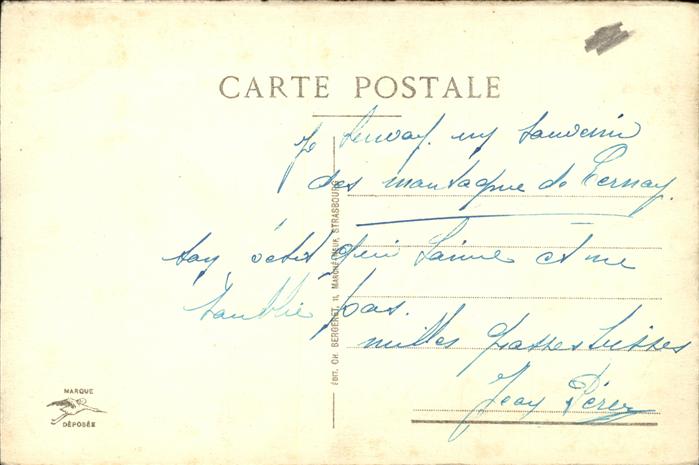 CARTE POSTALE
Je t'envoy un souvenir
des montagne de Cernay.
ton petit qui t'aime et ne
t'oublie pas.
milles grosses bisses
Jean Pérez
EDIT. CH. BERGERET, 11, MAROQUIN, STRASBOURG
MARQUE
DÉPOSÉE